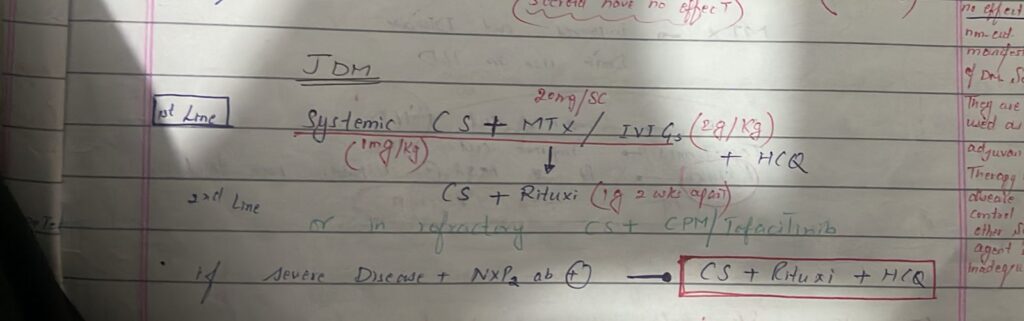 (Steroid have no effect)
JDM
1st Line
20mg/SC
Systemic CS + MTX / IVIGs (2g/Kg)
(1mg/Kg)
+ HCQ
2nd Line
CS + Rituxi (1g 2 wks apart)
or in refractory CS + CPM/Tofacitinib
if severe Disease + NXP2 ab (+) → CS + Rituxi + HCQ
no effect
manifes
of Dm
They are
used as
adjuvan
Therapy
disease
control
other
agent
inadequ